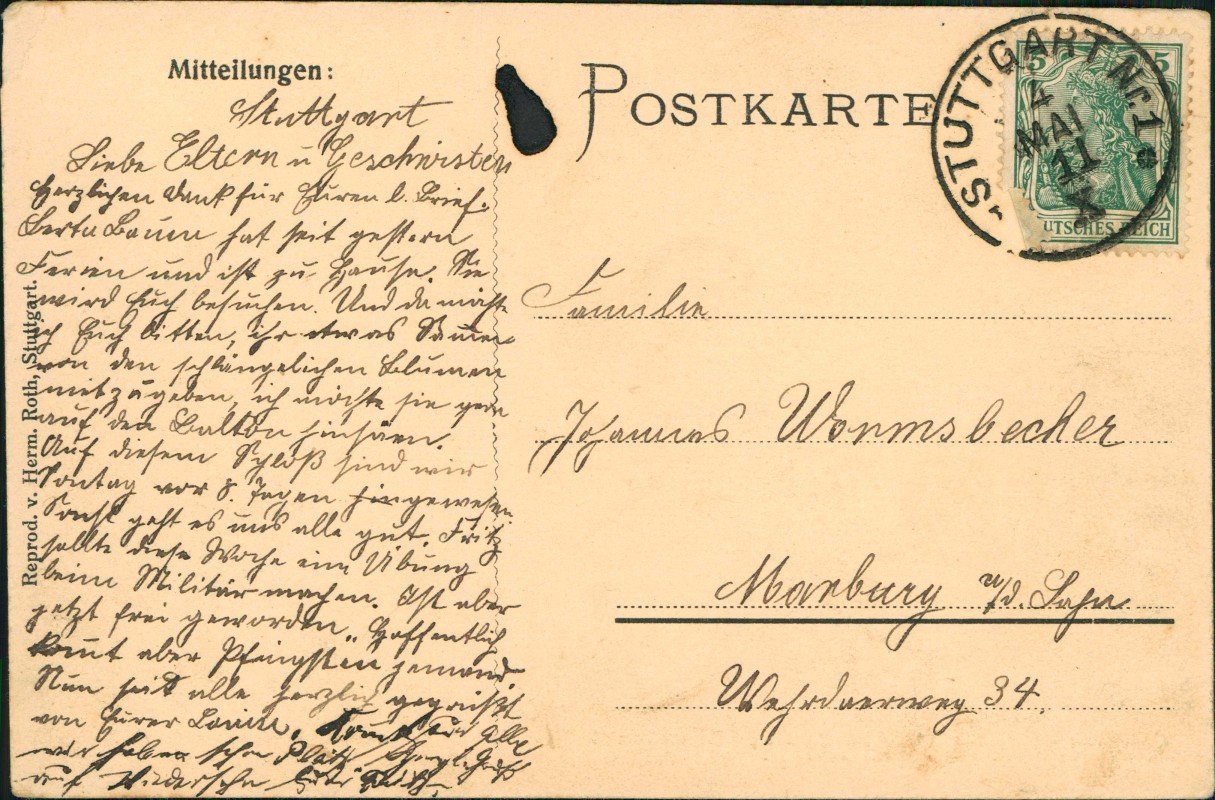 Mitteilungen:
Stuttgart
Liebe Eltern u Geschwister
Herzlichen Dank für Euren l. Brief.
Berta Baum hat seit gestern
Ferien und ist zu Hause. Sie
wird Euch besuchen. Und da möchte
ich Euch bitten, ihr etwas Samen
von den schlängelichen Blumen
mitzugeben, ich möchte sie gern
auf den Balkon hinsäen.
Auf diesem Schloß sind wir
Sontag vor 8. Tagen hingewesen.
Sonst geht es uns alle gut. Fritz
sollte diese Woche eine Übung
beim Militär machen. Ist aber
jetzt frei geworden. Hoffentlich
komt aber Pfingsten jemand
Nun seit alle herzlich gegrüßt
von Eurer Luise. Komt nur Alle
wir haben schon Platz
auf Wiedersehn
Reprod. v. Herm. Roth, Stuttgart.
POSTKARTE
STUTTGART Nr. 1
4
MAI
11
X
5 5
UTSCHES REICH
Familie
Johannes Wormsbecher
Marburg a/d. Lahn
Wehrdaerweg 34.